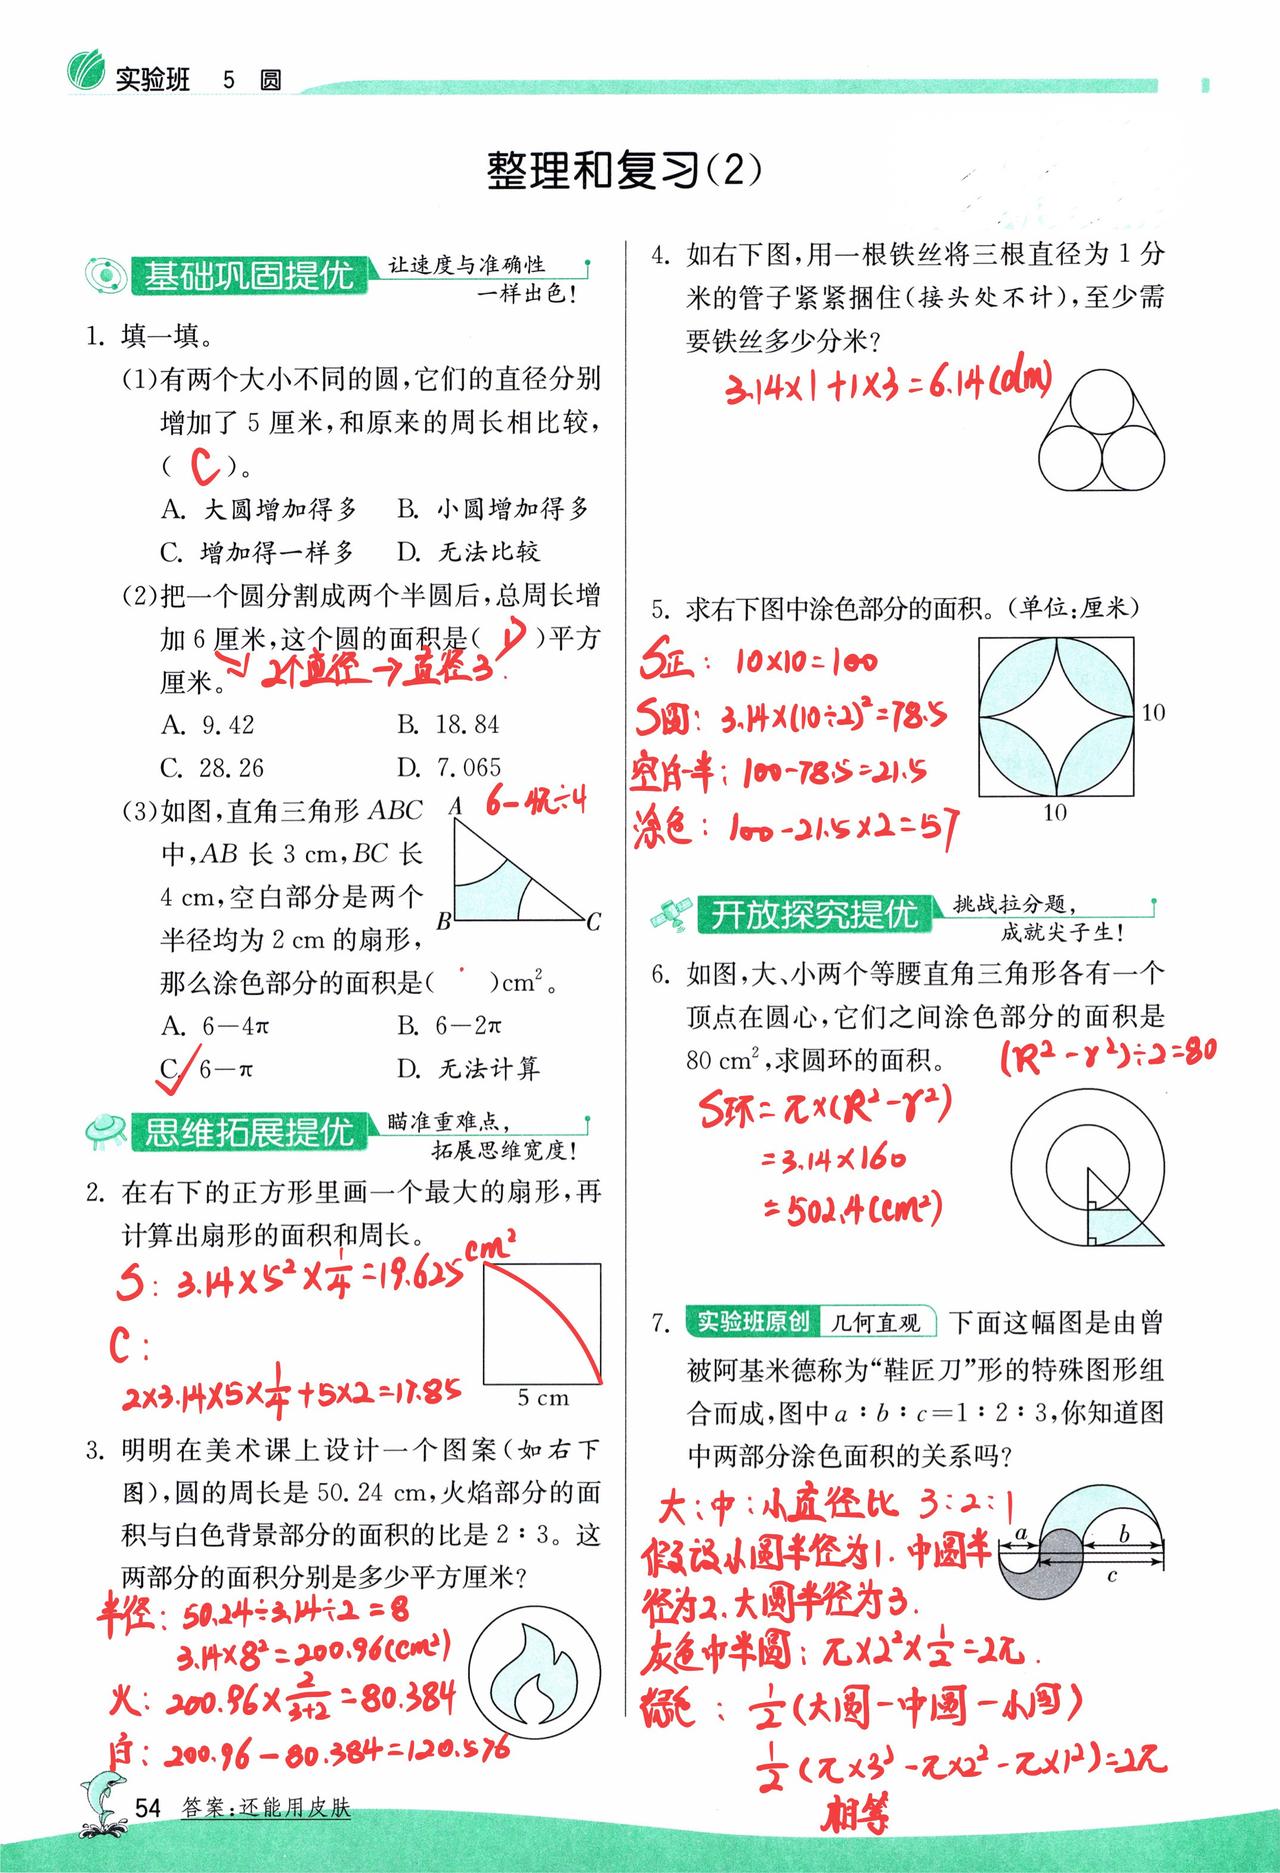 实验班 5 圆
整理和复习(2)
基础巩固提优 让速度与准确性
一样出色!
1. 填一填。
(1)有两个大小不同的圆,它们的直径分别
增加了 5 厘米,和原来的周长相比较,
( C )。
A. 大圆增加得多 B. 小圆增加得多
C. 增加得一样多 D. 无法比较
(2)把一个圆分割成两个半圆后,总周长增
加 6 厘米,这个圆的面积是( D )平方
厘米。
2个直径→直径3.
A. 9.42 B. 18.84
C. 28.26 D. 7.065
(3)如图,直角三角形 ABC
中,AB 长 3 cm,BC 长
4 cm,空白部分是两个
半径均为 2 cm 的扇形,
那么涂色部分的面积是( )cm²。
6-4π÷4
A
B
C
A. 6-4π B. 6-2π
C. 6-π D. 无法计算
思维拓展提优 瞄准重难点,
拓展思维宽度!
2. 在右下的正方形里画一个最大的扇形,再
计算出扇形的面积和周长。
S: 3.14×5²×1/4=19.625 cm²
C:
2×3.14×5×1/4+5×2=17.85
5 cm
3. 明明在美术课上设计一个图案(如右下
图),圆的周长是 50.24 cm,火焰部分的面
积与白色背景部分的面积的比是 2∶3。这
两部分的面积分别是多少平方厘米?
半径: 50.24÷3.14÷2=8
3.14×8²=200.96(cm²)
火: 200.96×2/(3+2)=80.384
白: 200.96-80.384=120.576
54 答案:还能用皮肤
4. 如右下图,用一根铁丝将三根直径为 1 分
米的管子紧紧捆住(接头处不计),至少需
要铁丝多少分米?
3.14×1+1×3=6.14(dm)
5. 求右下图中涂色部分的面积。(单位:厘米)
S正: 10×10=100
S圆: 3.14×(10÷2)²=78.5
空白一半: 100-78.5=21.5
涂色: 100-21.5×2=57
10
10
开放探究提优 挑战拉分题,
成就尖子生!
6. 如图,大、小两个等腰直角三角形各有一个
顶点在圆心,它们之间涂色部分的面积是
80 cm²,求圆环的面积。
(R²-r²)÷2=80
S环=π×(R²-r²)
=3.14×160
=502.4(cm²)
7. 实验班原创 几何直观 下面这幅图是由曾
被阿基米德称为“鞋匠刀”形的特殊图形组
合而成,图中 a∶b∶c=1∶2∶3,你知道图
中两部分涂色面积的关系吗?
大:中:小直径比 3:2:1
假设小圆半径为1.中圆半
径为2.大圆半径为3.
灰色中半圆: π×2²×1/2=2π.
绿色: 1/2(大圆-中圆-小圆)
1/2(π×3²-π×2²-π×1²)=2π
相等
a
b
c